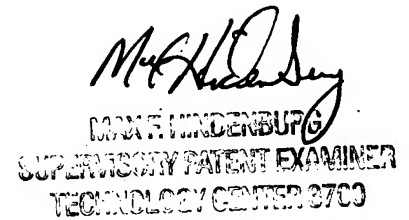 Max F. Hindenburg
MAX F. HINDENBURG
SUPERVISORY PATENT EXAMINER
TECHNOLOGY CENTER 3700